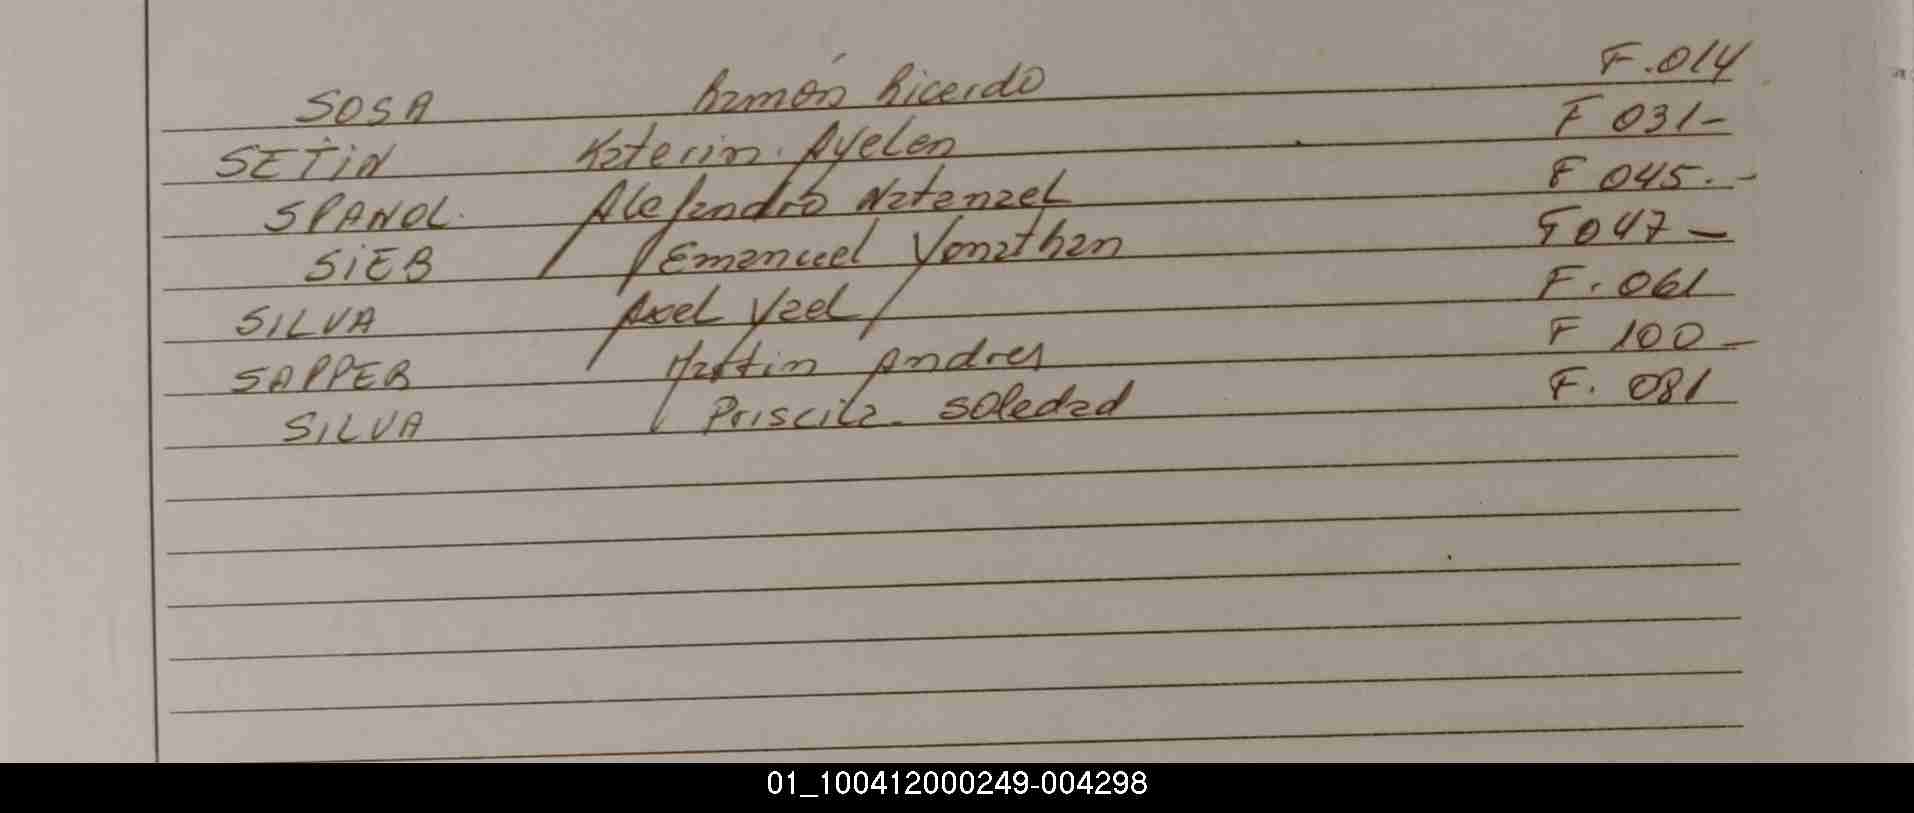 SOSA Ramón Ricardo F.014
SETIN Katerin Ayelen F 031-
SPANOL. Alejandro Natanael F 045.-
SIEB Emanuel Yonathan F 047-
SILVA Axel Yael F. 061
SAPPER Martin Andres F 100-
SILVA Priscila Soledad F. 081
01_100412000249-004298